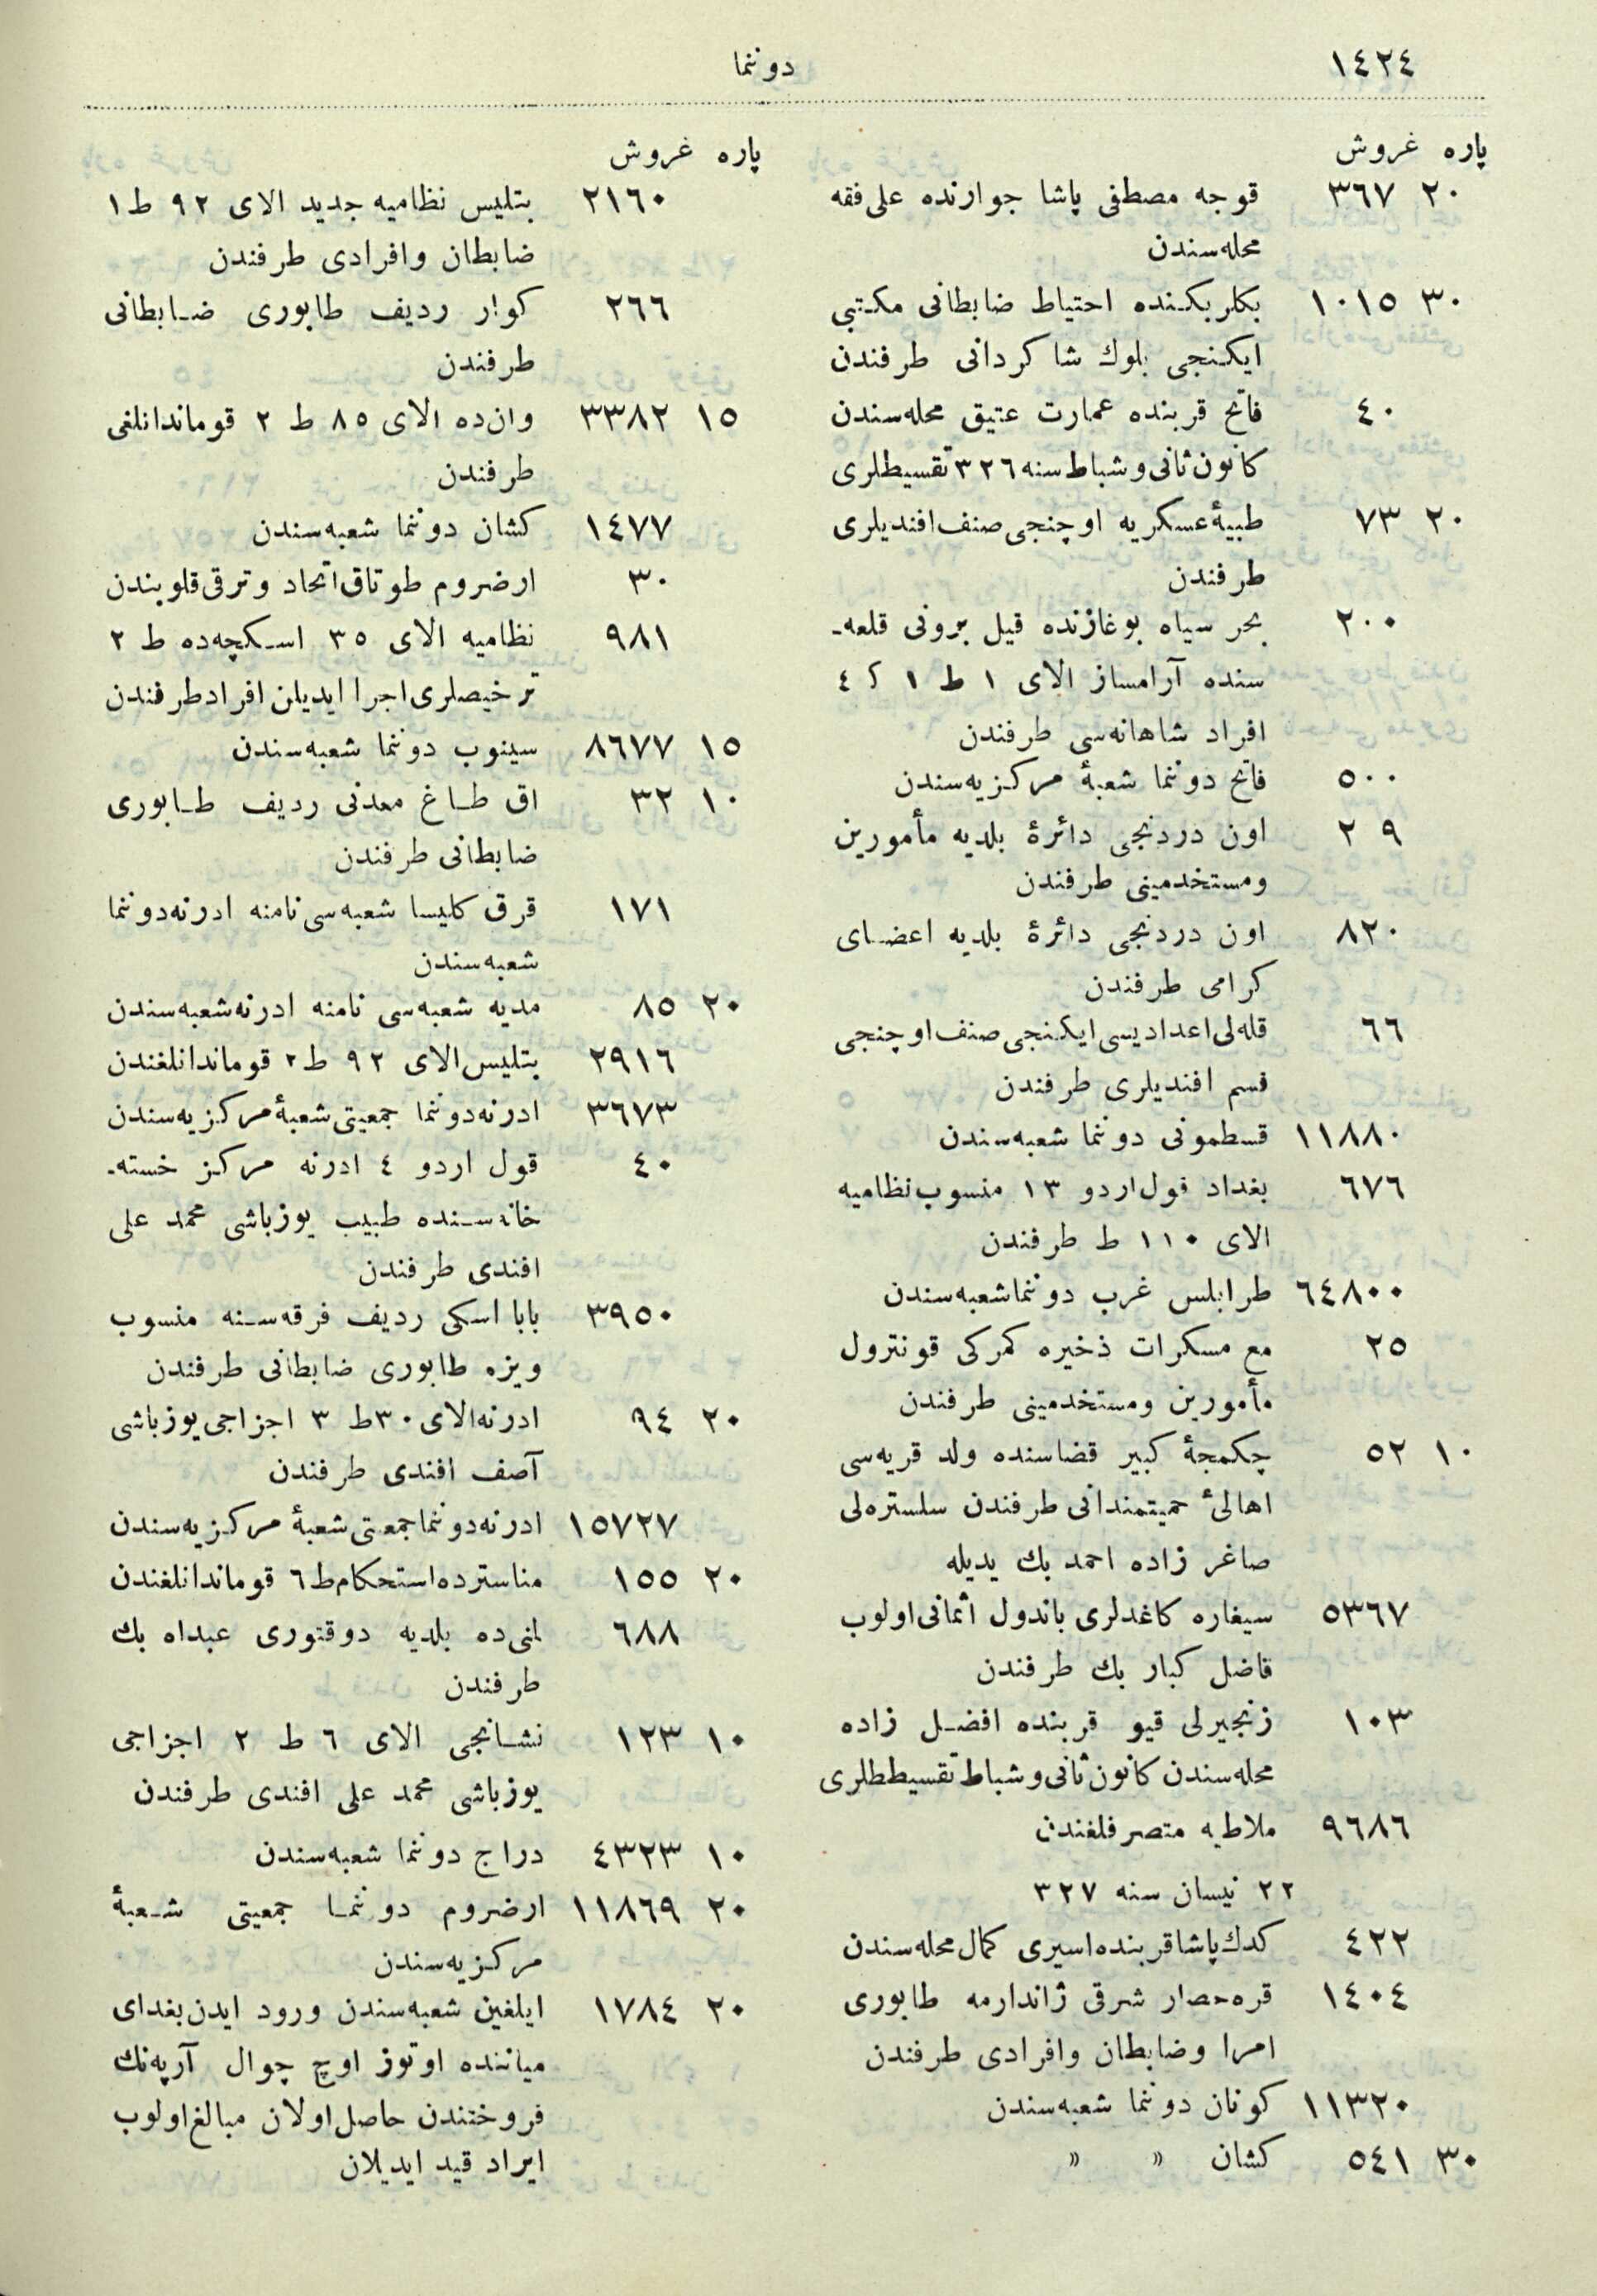 ١٤٢٤
دوننما
پاره غروش
٢٠ ٣٦٧ قوجه مصطفى پاشا جوارنده على فقه
محله‌سندن
٣٠ ١٠١٥ بكلربكنده احتياط ضابطانى مكتبى
ايكنجى بلوك شاكردانى طرفندن
٤٠ فاتح قربنده عمارت عتيق محله‌سندن
كانون ثانى وشباط سنه ٣٢٦ تقسيطلرى
٢٠ ٧٣ طبيهٔ عسكريه اوچنجى صنف افنديلرى
طرفندن
٢٠٠ بحر سياه بوغازنده قيل برونى قلعه‌ـ
سنده آرامساز الاى ١ ط ١ ك ٤
افراد شاهانه‌سى طرفندن
٥٠٠ فاتح دوننما شعبهٔ مركزيه‌سندن
٩ ٢ اون دردنجى دائرهٔ بلديه مأمورين
ومستخدمينى طرفندن
٨٢٠ اون دردنجى دائرهٔ بلديه اعضاى
كرامى طرفندن
٦٦ قله‌لى اعداديسى ايكنجى صنف اوچنجى
قسم افنديلرى طرفندن
١١٨٨٠ قسطمونى دوننما شعبه‌سندن
٦٧٦ بغداد قول اردو ١٣ منسوب نظاميه
الاى ١١٠ ط طرفندن
٦٤٨٠٠ طرابلس غرب دوننما شعبه‌سندن
٢٥ مع مسكرات ذخيره كمركى قونترول
مأمورين ومستخدمينى طرفندن
١٠ ٥٢ چكمجهٔ كبير قضاسنده ولد قريه‌سى
اهالئ حميتمندانى طرفندن سلستره‌لى
صاغر زاده احمد بك يديله
٥٣٦٧ سيغاره كاغدلرى باندول اثمانى اولوب
فاضل كبار بك طرفندن
١٠٣ زنجيرلى قيو قربنده افضل زاده
محله‌سندن كانون ثانى وشباط تقسيطلرى
٩٦٨٦ ملاطيه متصرفلغندن
٢٢ نيسان سنه ٣٢٧
٤٢٢ كدك پاشا قربنده اسيرى كمال محله‌سندن
١٤٠٤ قره‌حصار شرقى ژاندارمه طابورى
امرا وضابطان وافرادى طرفندن
١١٣٢٠ كونان دوننما شعبه‌سندن
٣٠ ٥٤١ كشان » »
پاره غروش
٢١٦٠ بتليس نظاميه جديد الاى ٩٢ ط ١
ضابطان وافرادى طرفندن
٢٦٦ كوار رديف طابورى ضابطانى
طرفندن
١٥ ٣٣٨٢ وان‌ده الاى ٨٥ ط ٢ قومانداнلغى
طرفندن
١٤٧٧ كشان دوننما شعبه‌سندن
٣٠ ارضروم طوتاق اتحاد وترقى قلوبندن
٩٨١ نظاميه الاى ٣٥ اسكچه‌ده ط ٢
ترخيصلرى اجرا ايديلن افراد طرفندن
١٥ ٨٦٧٧ سينوب دوننما شعبه‌سندن
١٠ ٣٢ اق طاغ معدنى رديف طابورى
ضابطانى طرفندن
١٧١ قرق كليسا شعبه‌سى نامنه ادرنه دوننما
شعبه‌سندن
٢٠ ٨٥ مديه شعبه‌سى نامنه ادرنه شعبه‌سندن
٢٩١٦ بتليس الاى ٩٢ ط ٢ قوماندانلغندن
٣٦٧٣ ادرنه دوننما جمعيتى شعبهٔ مركزيه‌سندن
٤٠ قول اردو ٤ ادرنه مركز خسته‌ـ
خانه‌سنده طبيب يوزباشى محمد على
افندى طرفندن
٣٩٥٠ بابا اسكى رديف فرقه‌سنه منسوب
ويزه طابورى ضابطانى طرفندن
٢٠ ٩٤ ادرنه الاى ٣٠ ط ٣ اجزاجى يوزباشى
آصف افندى طرفندن
١٥٧٢٧ ادرنه دوننما جمعيتى شعبهٔ مركزيه‌سندن
٢٠ ١٥٥ مناسترده استحكام ط ٦ قوماندانلغندن
٦٨٨ لمنى‌ده بلديه دوقتورى عبداه بك
طرفندن
١٠ ١٢٣ نشانجى الاى ٦ ط ٢ اجزاجى
يوزباشى محمد على افندى طرفندن
١٠ ٤٣٢٣ دراج دوننما شعبه‌سندن
٢٠ ١١٨٦٩ ارضروم دوننما جمعيتى شعبهٔ
مركزيه‌سندن
٢٠ ١٧٨٤ ايلغين شعبه‌سندن ورود ايدن بغداى
مياننده اوتوز اوچ چوال آرپه‌نك
فروختندن حاصل اولان مبالغ اولوب
ايراد قيد ايديلان